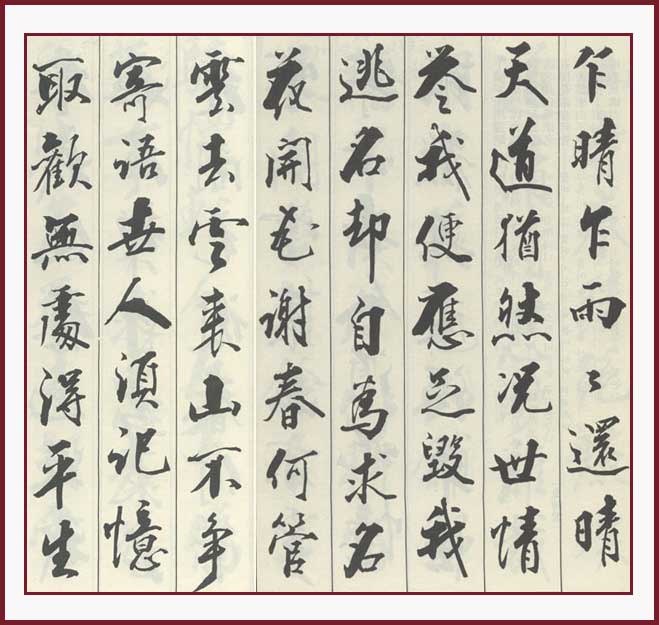 乍晴乍雨〻還晴
天道猶然况世情
誉我便應毀我
逃名却自為求名
花開花謝春何管
雲去雲来山不争
寄語世人須記憶
取歡無處得平生